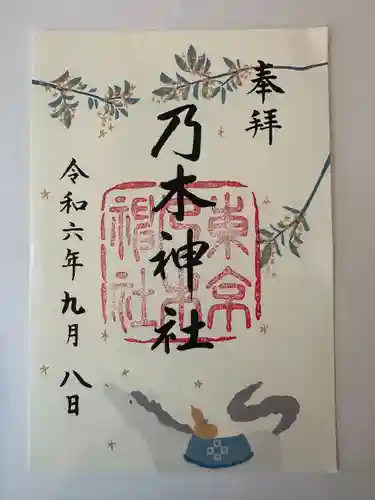 奉拝
乃木神社
東京
乃木
神社
令和六年九月八日